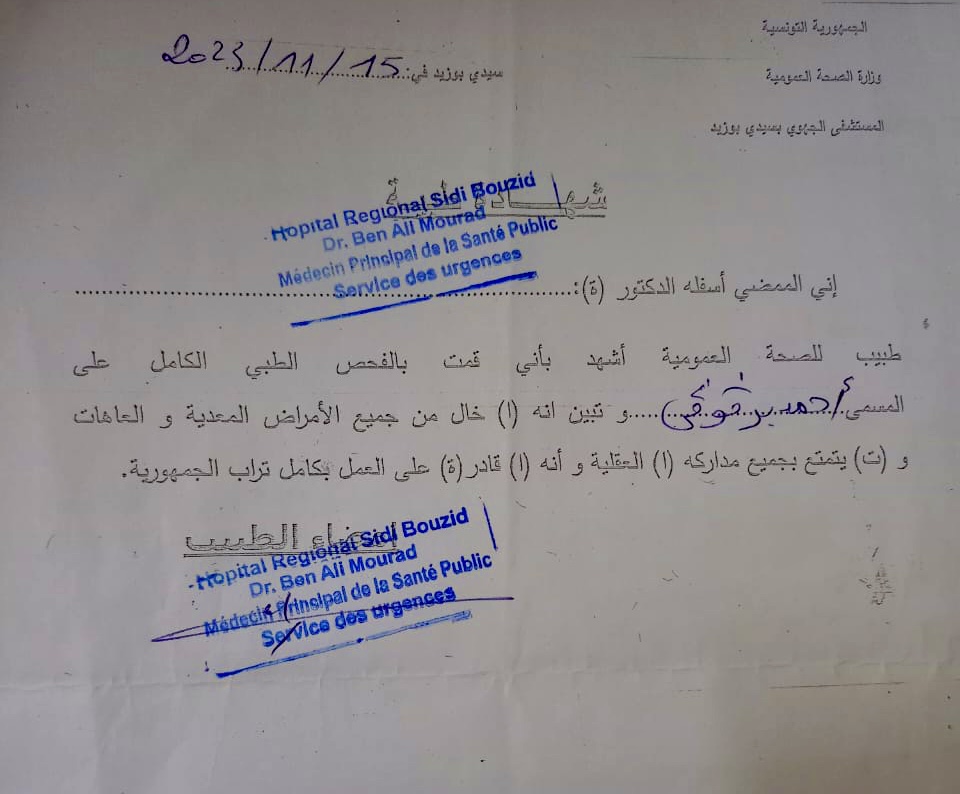 الجمهورية التونسية
وزارة الصحة العمومية
المستشفى الجهوي بسيدي بوزيد
سيدي بوزيد في: 2023/11/15
شهادة طبية
Hopital Regional Sidi Bouzid
Dr. Ben Ali Mourad
Médecin Principal de la Santé Public
Service des urgences
إني الممضي أسفله الدكتور (ة):
طبيب للصحة العمومية أشهد بأني قمت بالفحص الطبي الكامل على
المسمى أحمد و تبين انه (ا) خال من جميع الأمراض المعدية و العاهات
و (ت) يتمتع بجميع مداركه (ا) العقلية و أنه (ا) قادر (ة) على العمل بكامل تراب الجمهورية.
إمضاء الطبيب
Hopital Regional Sidi Bouzid
Dr. Ben Ali Mourad
Médecin Principal de la Santé Public
Service des urgences